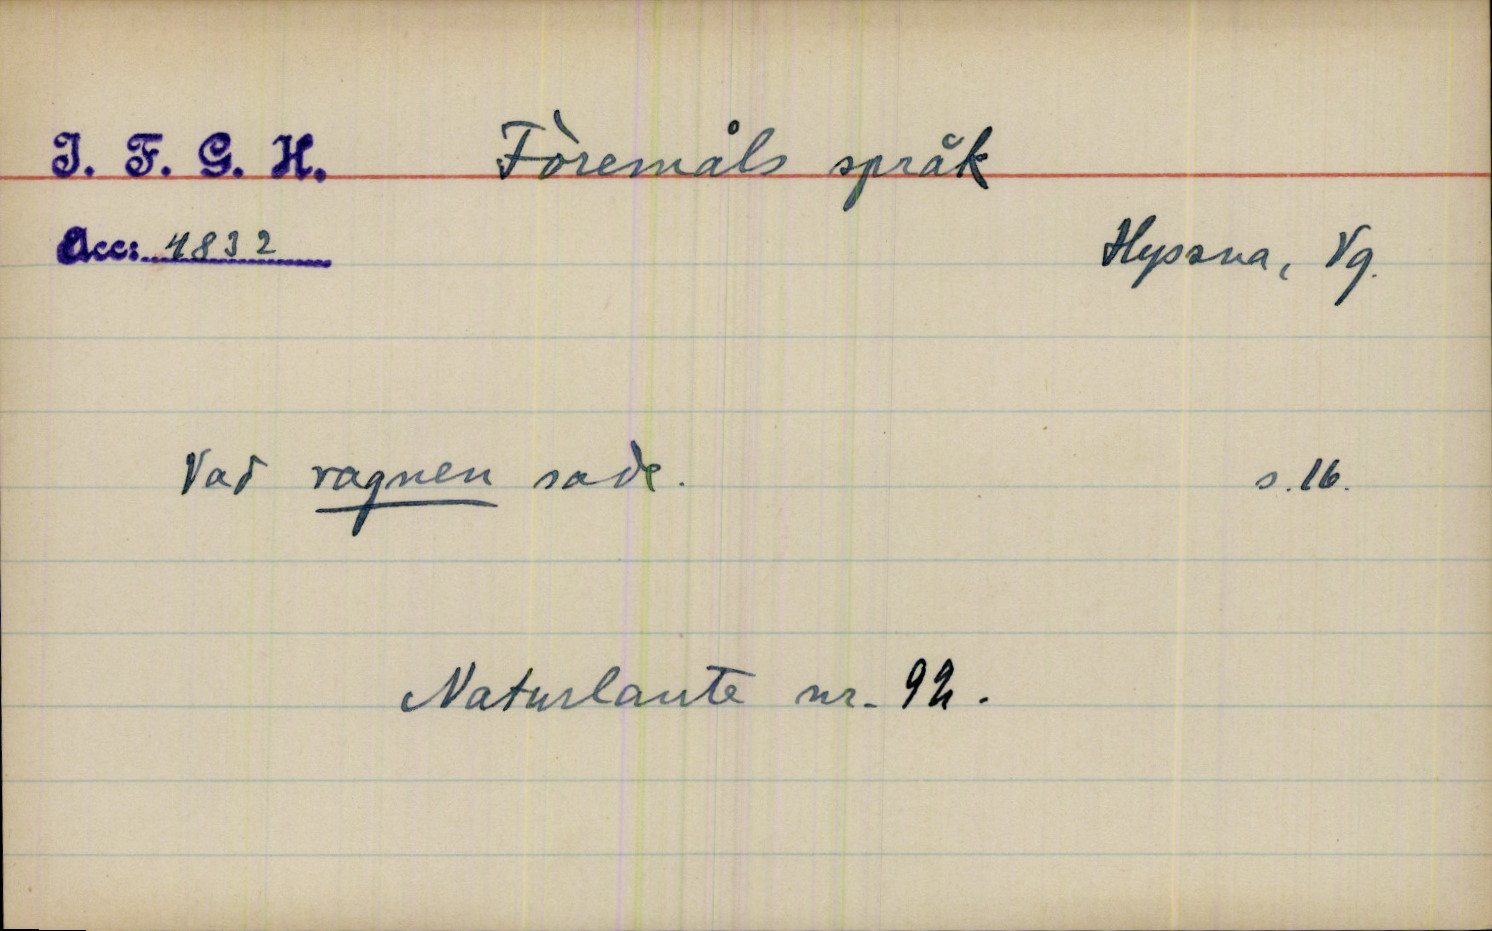 I. F. G. H. Föremåls språk
Acc: 4832 Hyssna, Vg.
Vad vagnen sade. s. 16.
Naturlaute nr. 92.